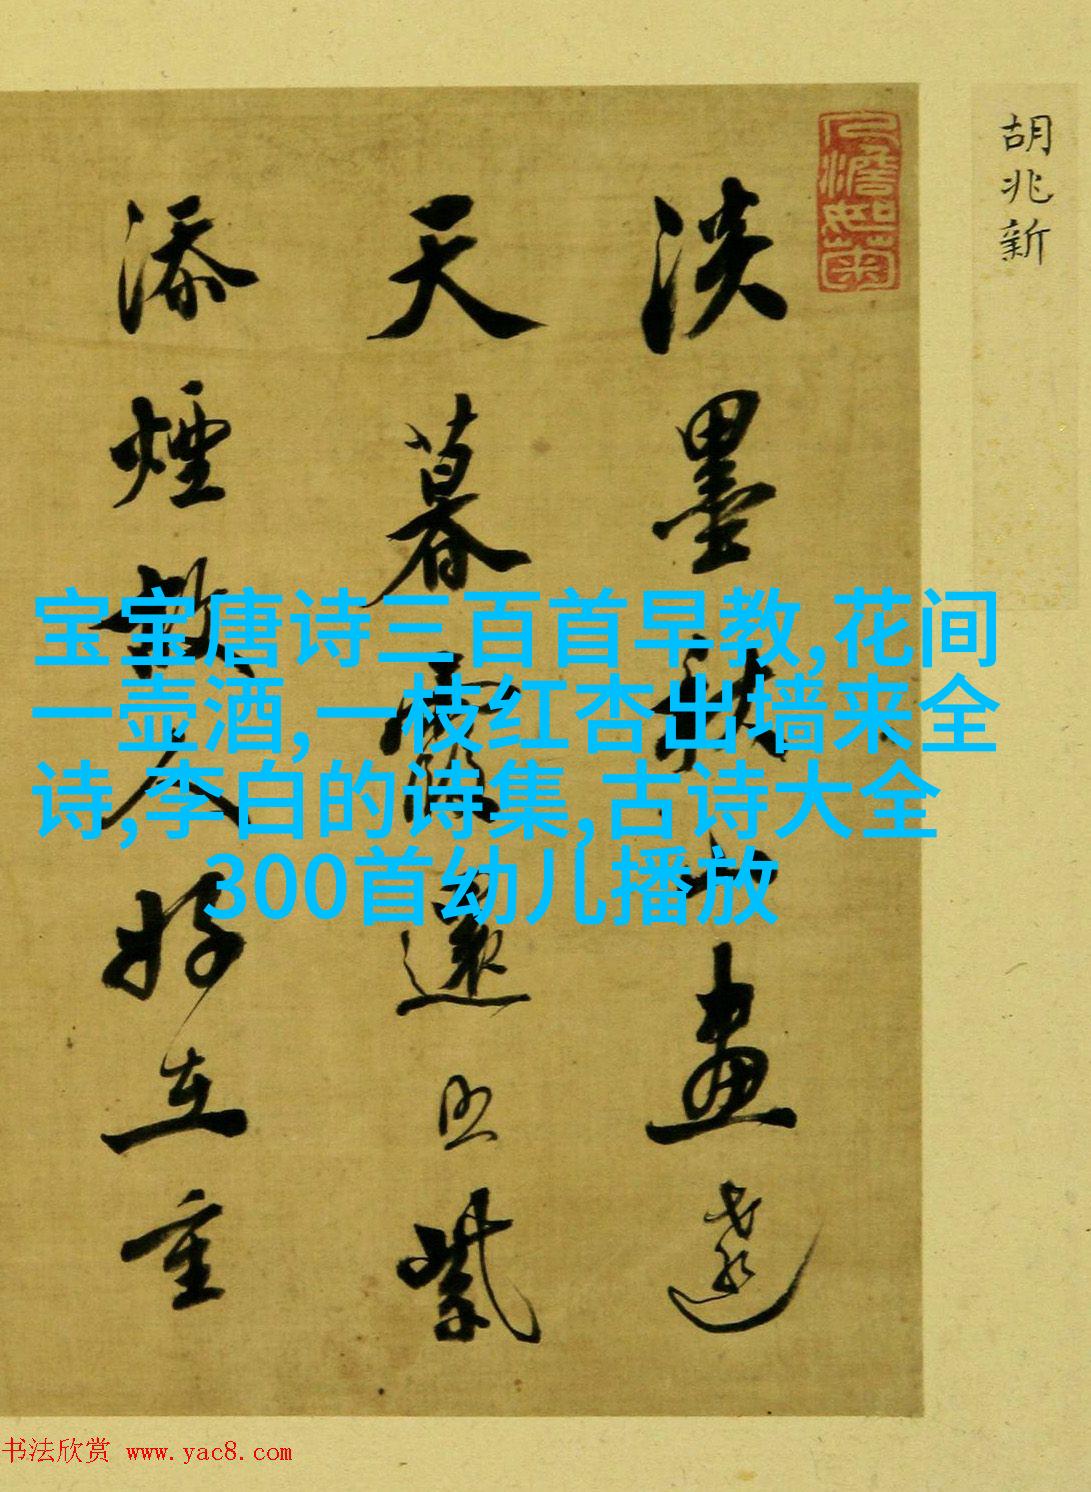 胡兆新
淡墨秋山画远
天暮霞還照紫
添煙故人好在重
宝宝唐诗三百首早教,花间
一壶酒,一枝红杏出墙来全
诗,李白的诗集,古诗大全
300首幼儿播放
书法欣赏 www.yac8.com